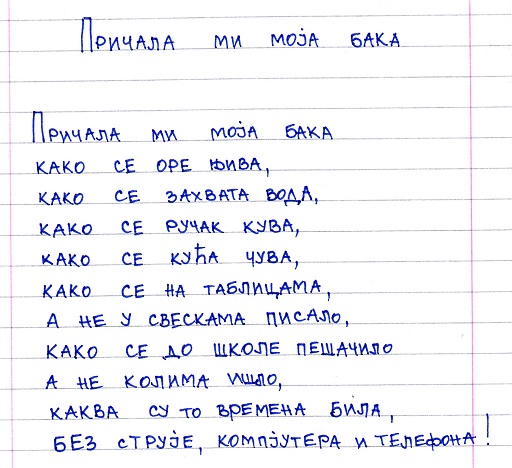 Причала ми моја бака
Причала ми моја бака
како се оре њива,
како се захвата вода,
како се ручак кува,
како се кућа чува,
како се на таблицама,
а не у свескама писало,
како се до школе пешачило
а не колима ишло,
каква су то времена била,
без струје, компјутера и телефона!